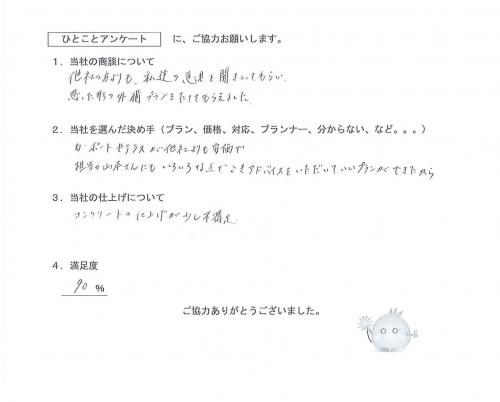 ひとことアンケート に、ご協力お願いします。
1．当社の商談について
他社の方よりも、私達の意見を聞き入てもらい
思った形の外構プランをたててもらえました。
2．当社を選んだ決め手（プラン、価格、対応、プランナー、分からない、など。。。）
カーポートやテラスが他社よりも安価で
担当の山本さんにもいろいろな点でごきアドバイスをいただいていいプランができたから
3．当社の仕上げについて
コンクリートの仕上げが少し不満足
4．満足度
90 %
ご協力ありがとうございました。